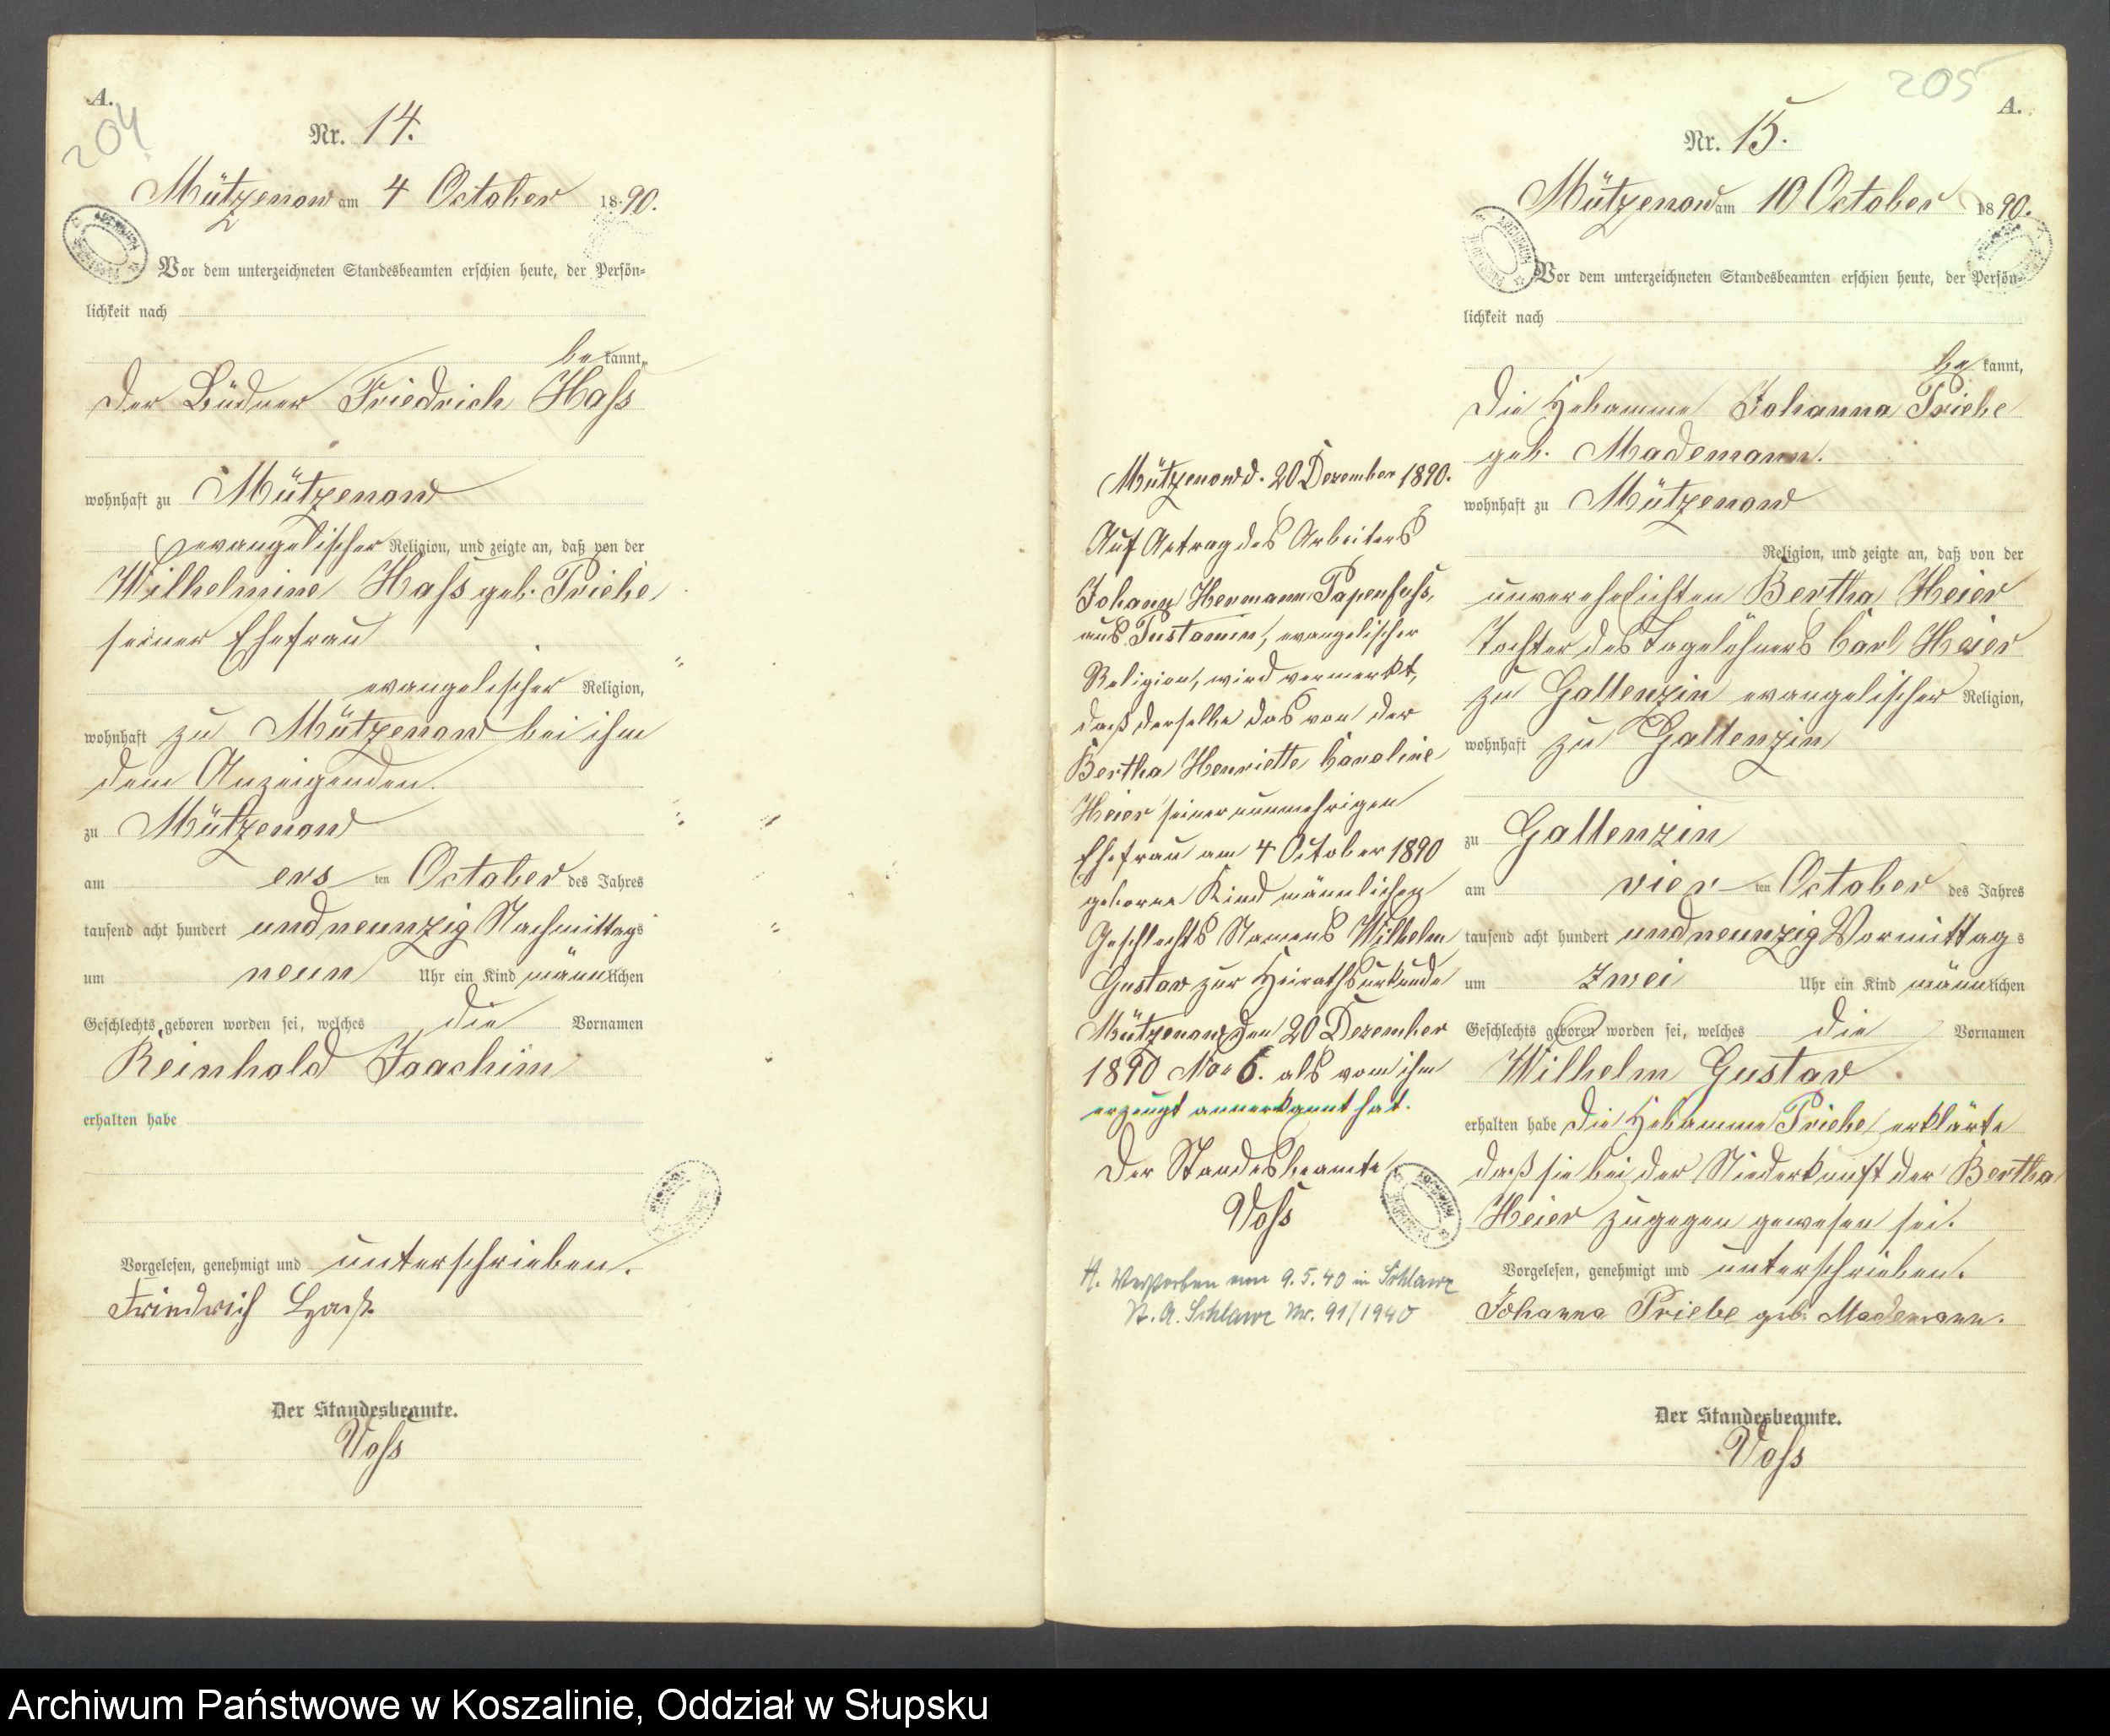 A.
204
Nr. 14.
Mützenow am 4 October 1890.
Vor dem unterzeichneten Standesbeamten erschien heute, der Persön-
lichkeit nach
bekannt,
der Büdner Friedrich Hass
wohnhaft zu Mützenow
evangelischer Religion, und zeigte an, daß von der
Wilhelmine Hass geb. Priebe,
seiner Ehefrau
evangelischer Religion,
wohnhaft zu Mützenow bei ihm
dem Anzeigenden.
zu Mützenow
am ersten October des Jahres
tausend acht hundert und neunzig Nachmittags
um neun Uhr ein Kind männlichen
Geschlechts geboren worden sei, welches die Vornamen
Reinhold Joachim
erhalten habe
Vorgelesen, genehmigt und unterschrieben.
Friedrich Haß
Der Standesbeamte.
Voss
Mützenow d. 20 Dezember 1890.
Auf Antrag des Arbeiters
Johann Hermann Papenfuss,
aus Pustamin, evangelischer
Religion, wird vermerkt,
daß derselbe das von der
Bertha Henriette Caroline
Heier seiner nunmehrigen
Ehefrau am 4 October 1890
geborne Kind männlichen
Geschlechts Namens Wilhelm
Gustav zur Heirathsurkunde
Mützenow den 20 Dezember
1890 No. 6. als vom ihm
erzeugt annerkannt hat.
Der Standesbeamte
Voss
H. Verstorben am 9.5.40 in Schlawe
St. A. Schlawe Nr. 91/1940
205
A.
Nr. 15.
Mützenow am 10 October 1890.
Vor dem unterzeichneten Standesbeamten erschien heute, der Persön-
lichkeit nach
bekannt,
die Hebamme Johanna Priebe
geb. Mademann.
wohnhaft zu Mützenow
Religion, und zeigte an, daß von der
unverehelichten Bertha Heier
Tochter des Tagelöhners Carl Heier
zu Gallenzin evangelischer Religion,
wohnhaft zu Gallenzin
zu Gallenzin
am vierten October des Jahres
tausend acht hundert und neunzig Vormittags
um zwei Uhr ein Kind männlichen
Geschlechts geboren worden sei, welches die Vornamen
Wilhelm Gustav
erhalten habe die Hebamme Priebe erklärte
daß sie bei der Niederkunft der Bertha
Heier zugegen gewesen sei.
Vorgelesen, genehmigt und unterschrieben.
Johanna Priebe geb. Mademann.
Der Standesbeamte.
Voss
Archiwum Państwowe w Koszalinie, Oddział w Słupsku